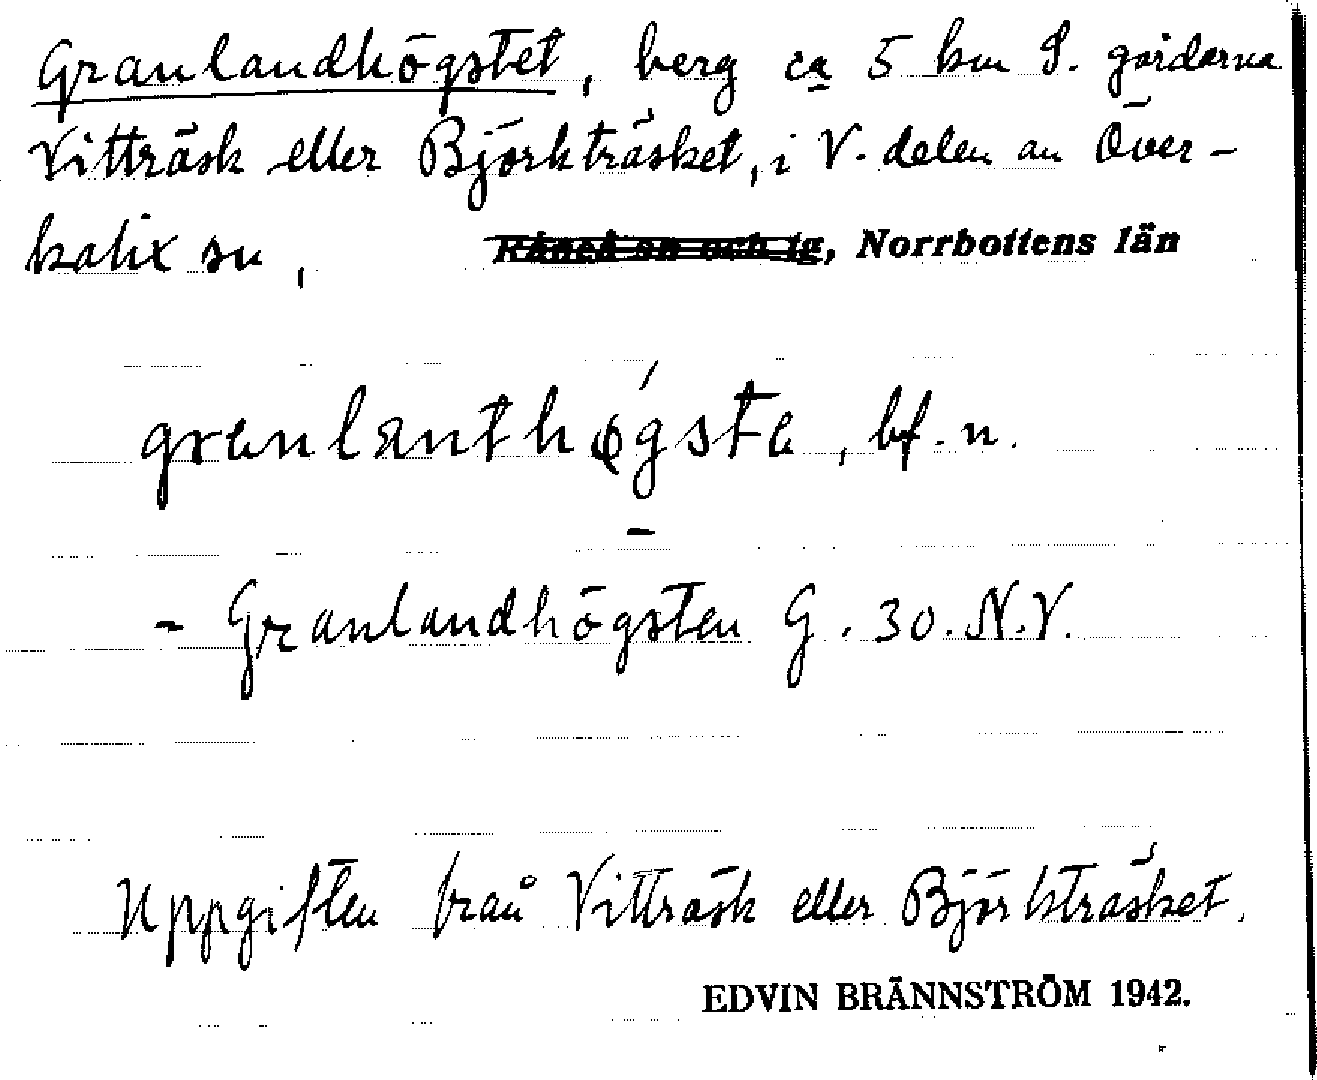 Granlandhögstet, berg ca 5 km S. gårdarna
Vitträsk eller Björkträsket, i V. delen av Över-
kalix sn, Råneå sn och tg, Norrbottens län
granlanthøgsta, bf. n.
- Granlandhögsten G. 30. N.V.
Uppgiften från Vitträsk eller Björkträsket.
EDVIN BRÄNNSTRÖM 1942.